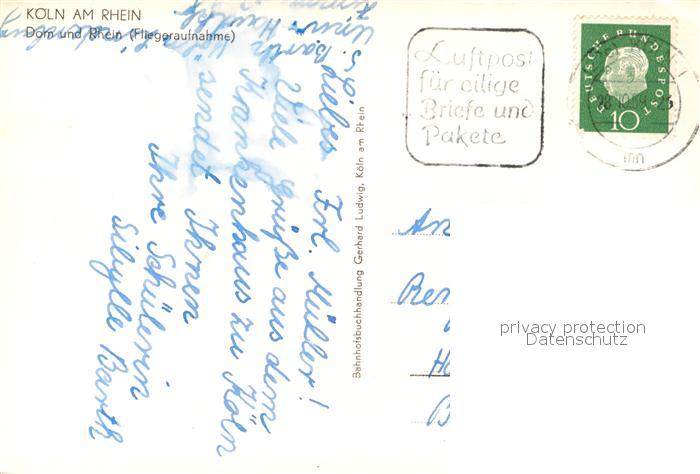 KÖLN AM RHEIN
Dom und Rhein (Fliegeraufnahme)
Liebes Frl. Müller!
Viele Grüße aus dem
Krankenhaus zu Köln
sendet Ihnen
Ihre Schülerin
Sibylle Barth
Bahnhofsbuchhandlung Gerhard Ludwig, Köln am Rhein
Luftpost
für eilige
Briefe und
Pakete
DEUTSCHE BUNDESPOST
10
mn
An
privacy protection
Datenschutz